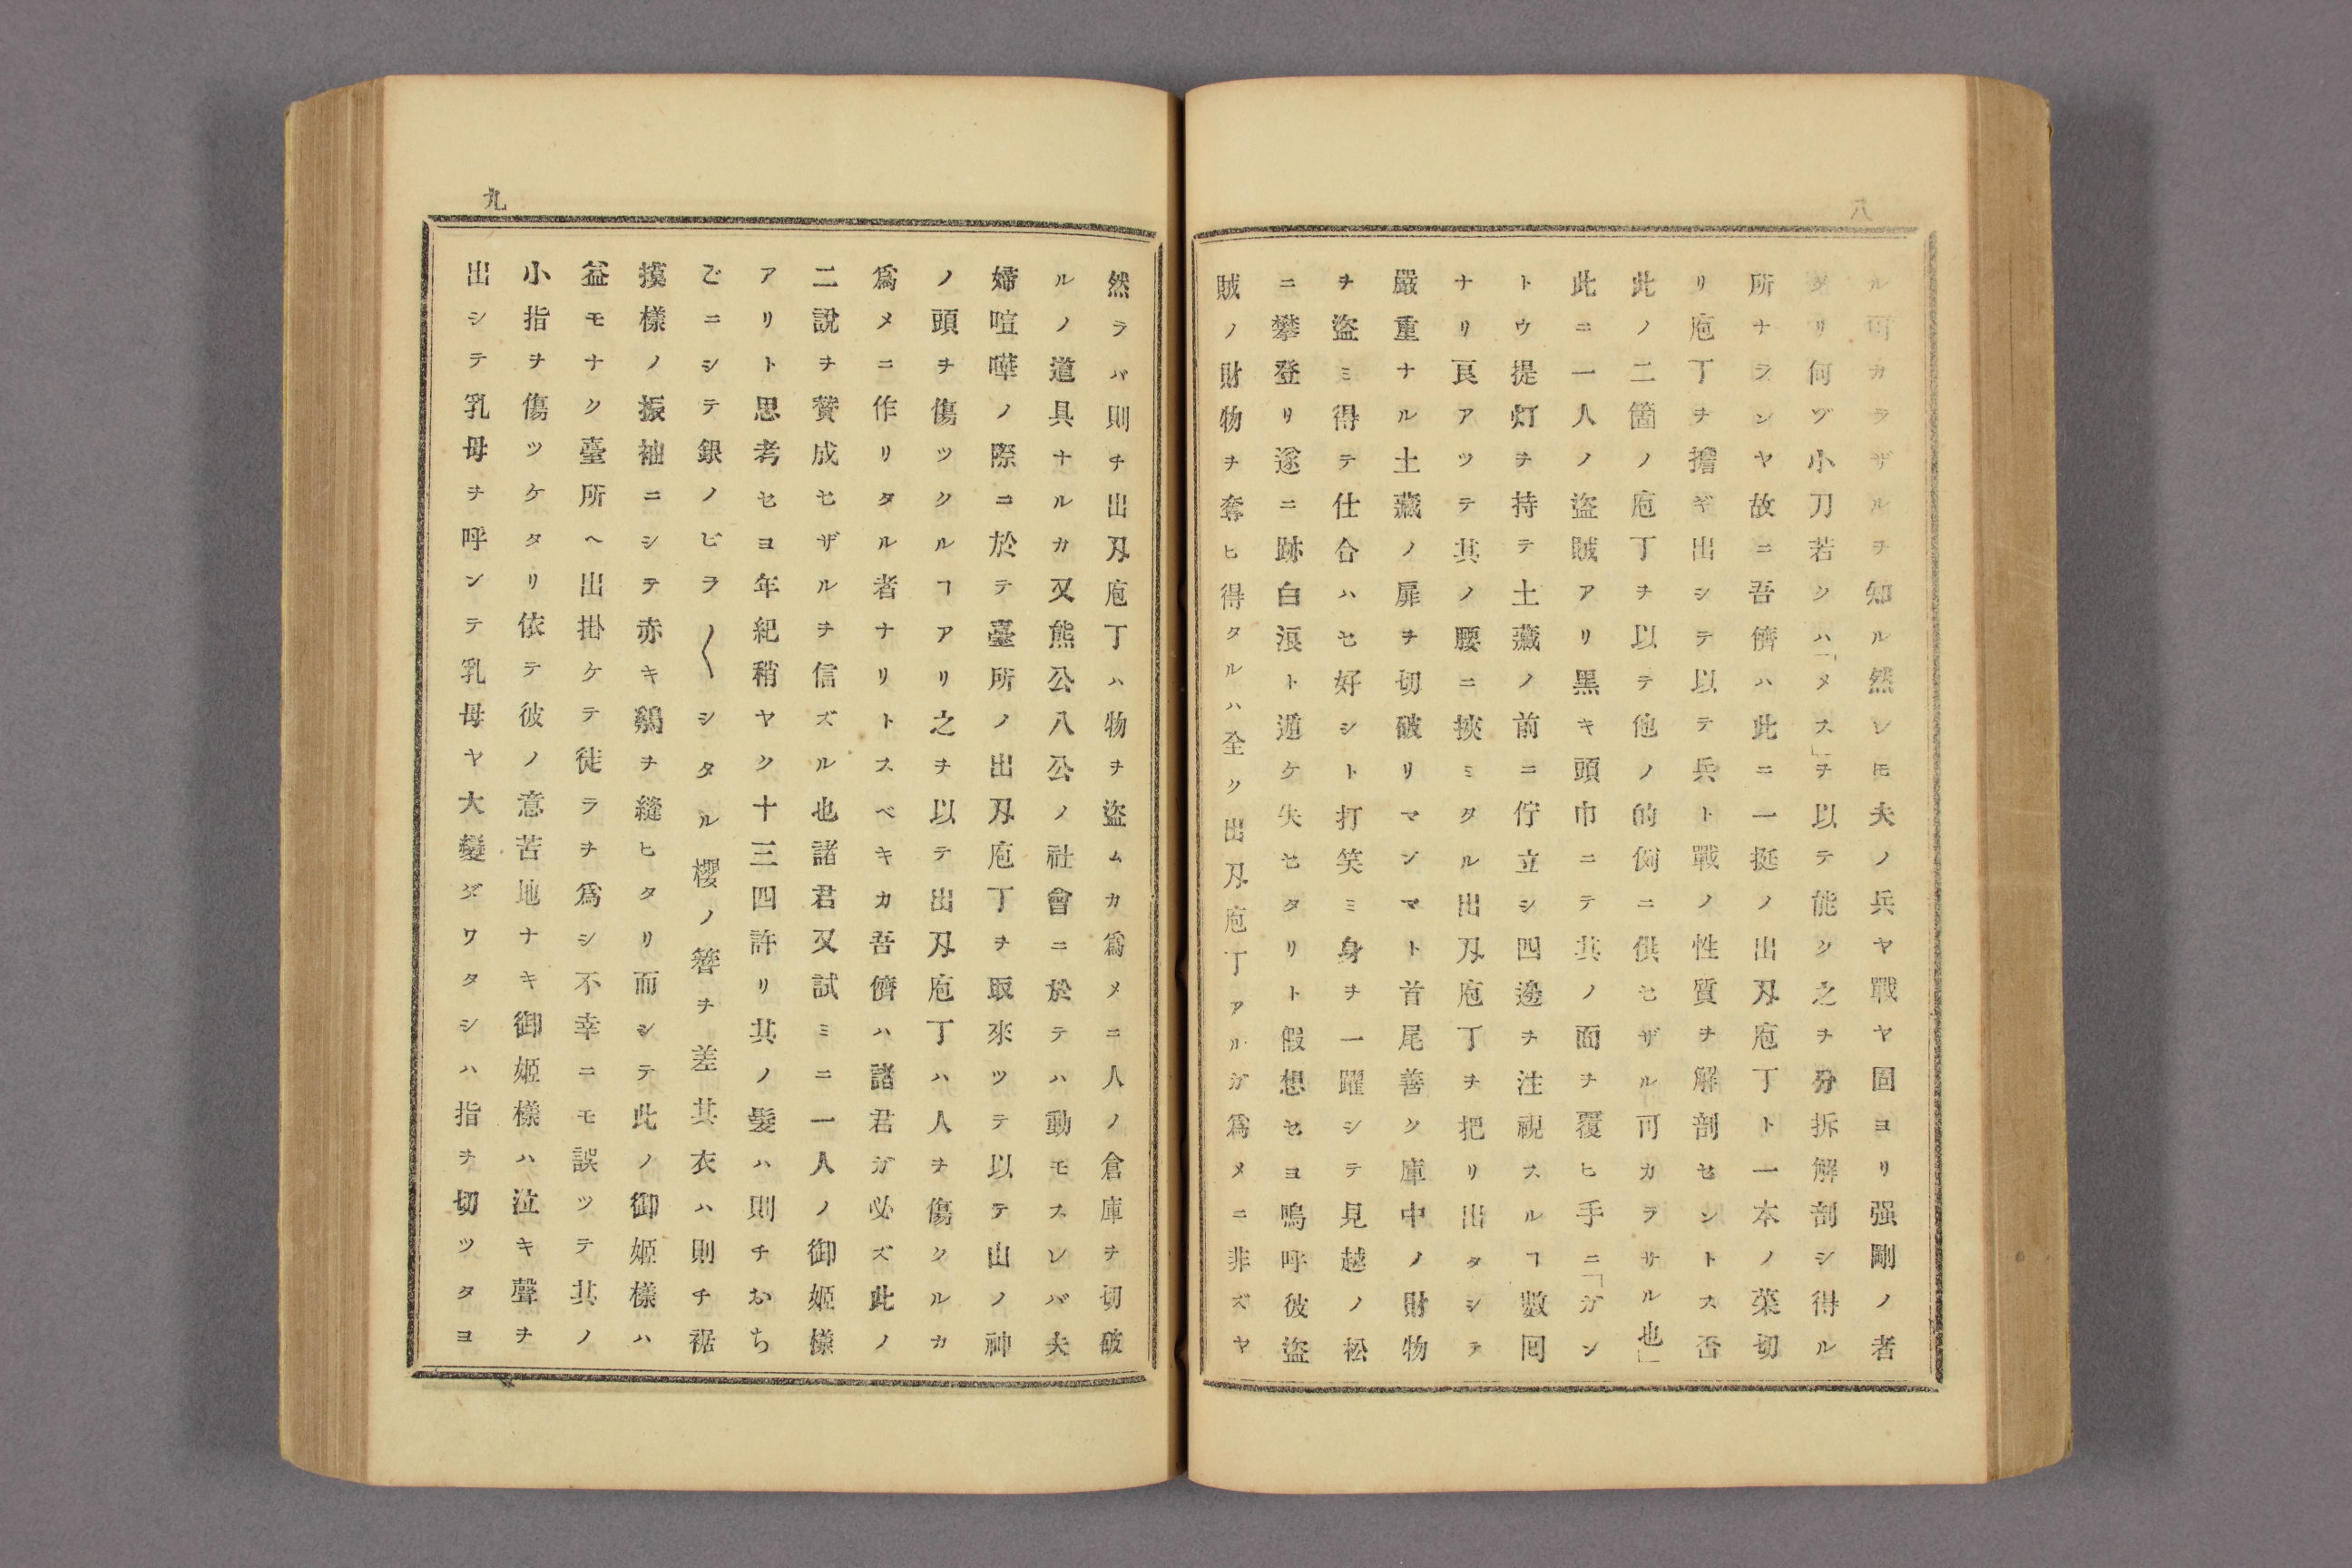 八
ル可カラザルヲ知ル然レ𪜈夫ノ兵ヤ戰ヤ固ヨリ强剛ノ者
タリ何ヅ小刀若クハ「メス」ヲ以テ能ク之ヲ分拆解剖シ得ル
所ナランヤ故ニ吾儕ハ此ニ一挺ノ出刄庖丁ト一本ノ菜切
リ庖丁ヲ擔ギ出シテ以テ兵ト戰ノ性質ヲ解剖セシトス否
此ノ二箇ノ庖丁ヲ以テ他ノ的例ニ供セザル可カラサル也」
此ニ一人ノ盜賊アリ黑キ頭巾ニテ其ノ面ヲ覆ヒ手ニ「ガン
トウ提灯ヲ持テ土藏ノ前ニ佇立シ四邊ヲ注視スルヿ數回
ナリ𠄔アツテ其ノ腰ニ挾ミタル出刄庖丁ヲ把リ出タシテ
嚴重ナル土藏ノ扉ヲ切破リマンマト首尾善ク庫中ノ財物
ヲ盜ミ得テ仕合ハセ好シト打笑ミ身ヲ一躍シテ見越ノ松
ニ攀登リ遂ニ跡白浪ト遁ケ失セタリト假想セヨ嗚呼彼盜
賊ノ財物ヲ奪ヒ得タルハ全ク出刄庖丁アルガ爲メニ非ズヤ
九
然ラバ則チ出刄庖丁ハ物ヲ盜ムカ爲メニ人ノ倉庫ヲ切破
ルノ道具ナルカ又熊公八公ノ社會ニ於テハ動モスレバ夫
婦喧嘩ノ際ニ於テ臺所ノ出刄庖丁ヲ取來ツテ以テ山ノ神
ノ頭ヲ傷ツクルヿアリ之ヲ以テ出刄庖丁ハ人ヲ傷クルカ
爲メニ作リタル者ナリトスベキカ吾儕ハ諸君ガ必ズ此ノ
二說ヲ贊成セザルヲ信ズル也諸君又試ミニ一人ノ御姬樣
アリト思考セヨ年紀稍ヤク十三四許リ其ノ髮ハ則チおち
ごニシテ銀ノビラ〳〵シタル櫻ノ簪ヲ差其衣ハ則チ裾
摸樣ノ振袖ニシテ赤キ鷄ヲ縫ヒタリ而シテ此ノ御姬樣ハ
益モナク臺所ヘ出掛ケテ徒ラヲ爲シ不幸ニモ誤ツテ其ノ
小指ヲ傷ツケタリ依テ彼ノ意苦地ナキ御姬樣ハ泣キ聲ヲ
出シテ乳母ヲ呼ンテ乳母ヤ大變ダワタシハ指ヲ切ツタヨ